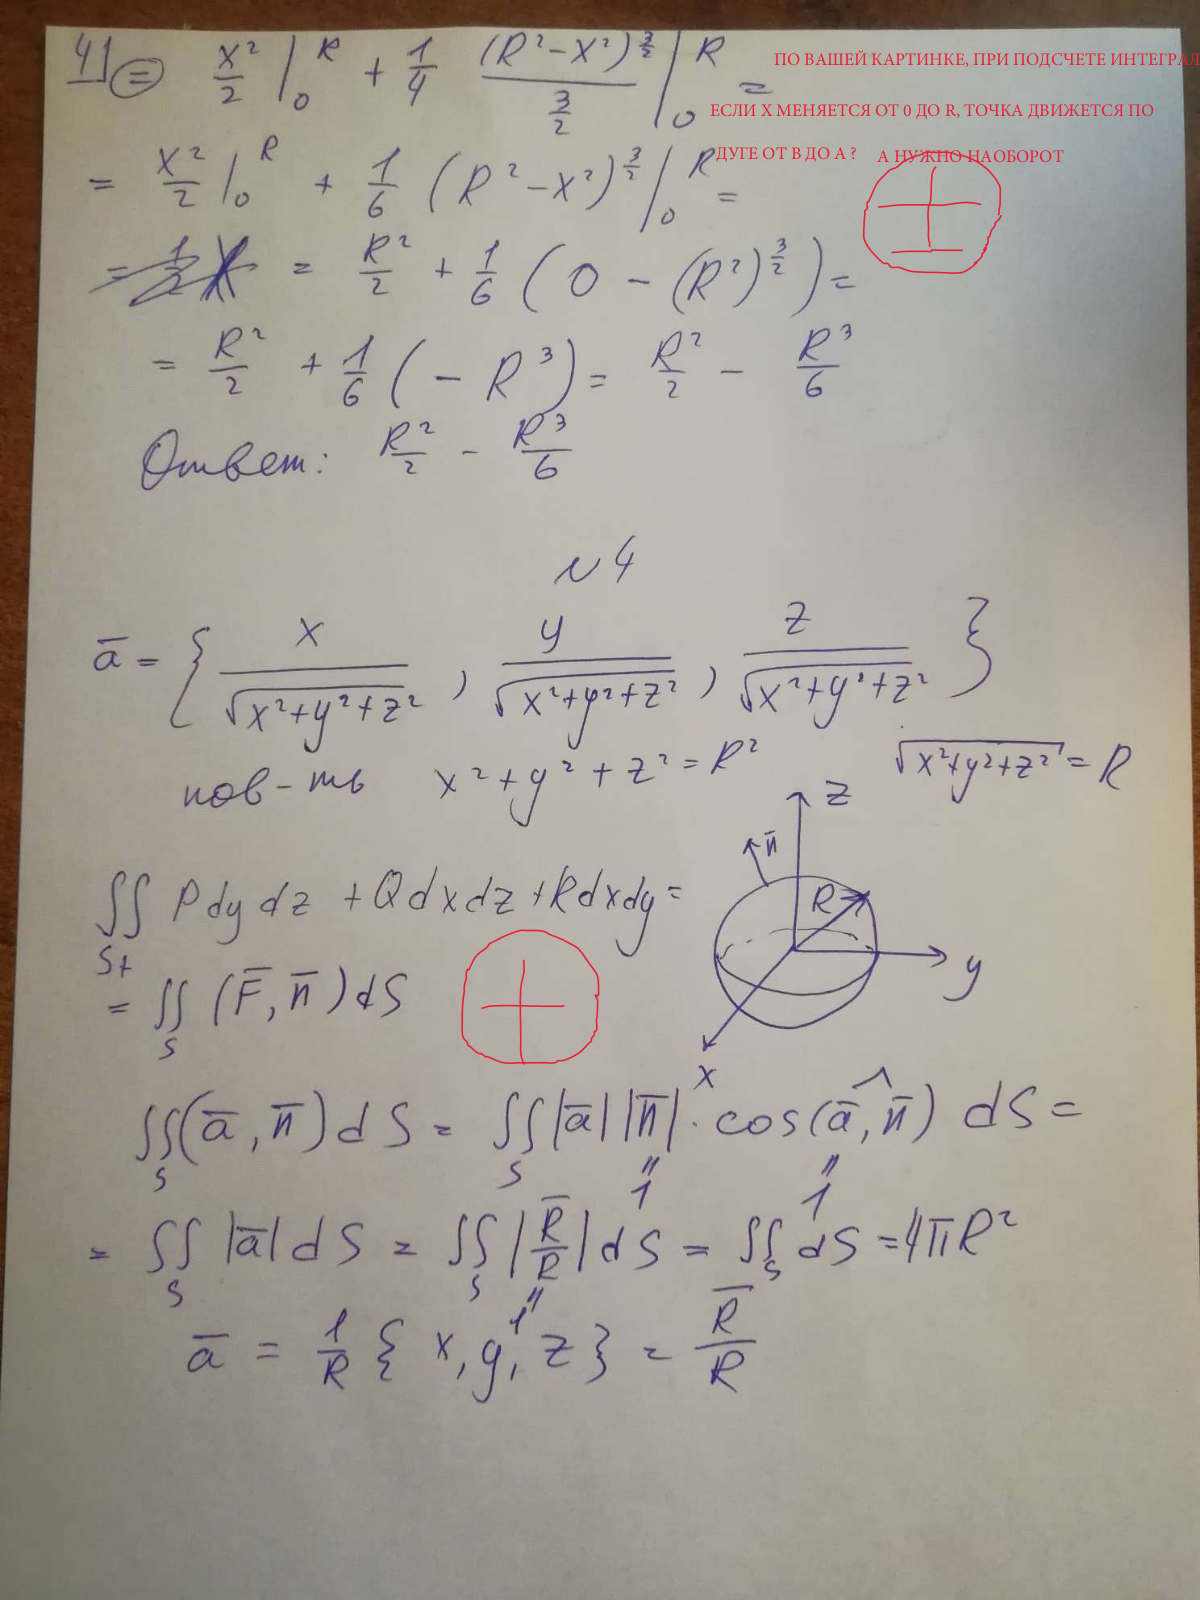 4) = x²/2 |₀ᴿ + 1/4 (R²-x²)^(3/2) / (3/2) |₀ᴿ =
ПО ВАШЕЙ КАРТИНКЕ, ПРИ ПОДСЧЕТЕ ИНТЕГРАЛ
ЕСЛИ X МЕНЯЕТСЯ ОТ 0 ДО R, ТОЧКА ДВИЖЕТСЯ ПО
ДУГЕ ОТ B ДО A ? А НУЖНО НАОБОРОТ
= x²/2 |₀ᴿ + 1/6 (R²-x²)^(3/2) |₀ᴿ =
= R²/2 + 1/6 (0 - (R²)^(3/2)) =
= R²/2 + 1/6 (-R³) = R²/2 - R³/6
Ответ: R²/2 - R³/6
N4
ā = { x/√(x²+y²+z²) , y/√(x²+y²+z²) , z/√(x²+y²+z²) }
пов-ть x²+y²+z²=R² √(x²+y²+z²) = R
z
n̄
R
y
x
∬_{S+} Pdydz + Qdxdz + Rdxdy =
= ∬_S (F̄, n̄)dS
∬_S (ā, n̄)dS = ∬_S |ā||n̄|·cos(ā,^n̄) dS =
" 1 " 1
= ∬_S |ā|dS = ∬_S |R̄/R|dS = ∬_S dS = 4πR²
" 1
ā = 1/R {x, y, z} = R̄/R